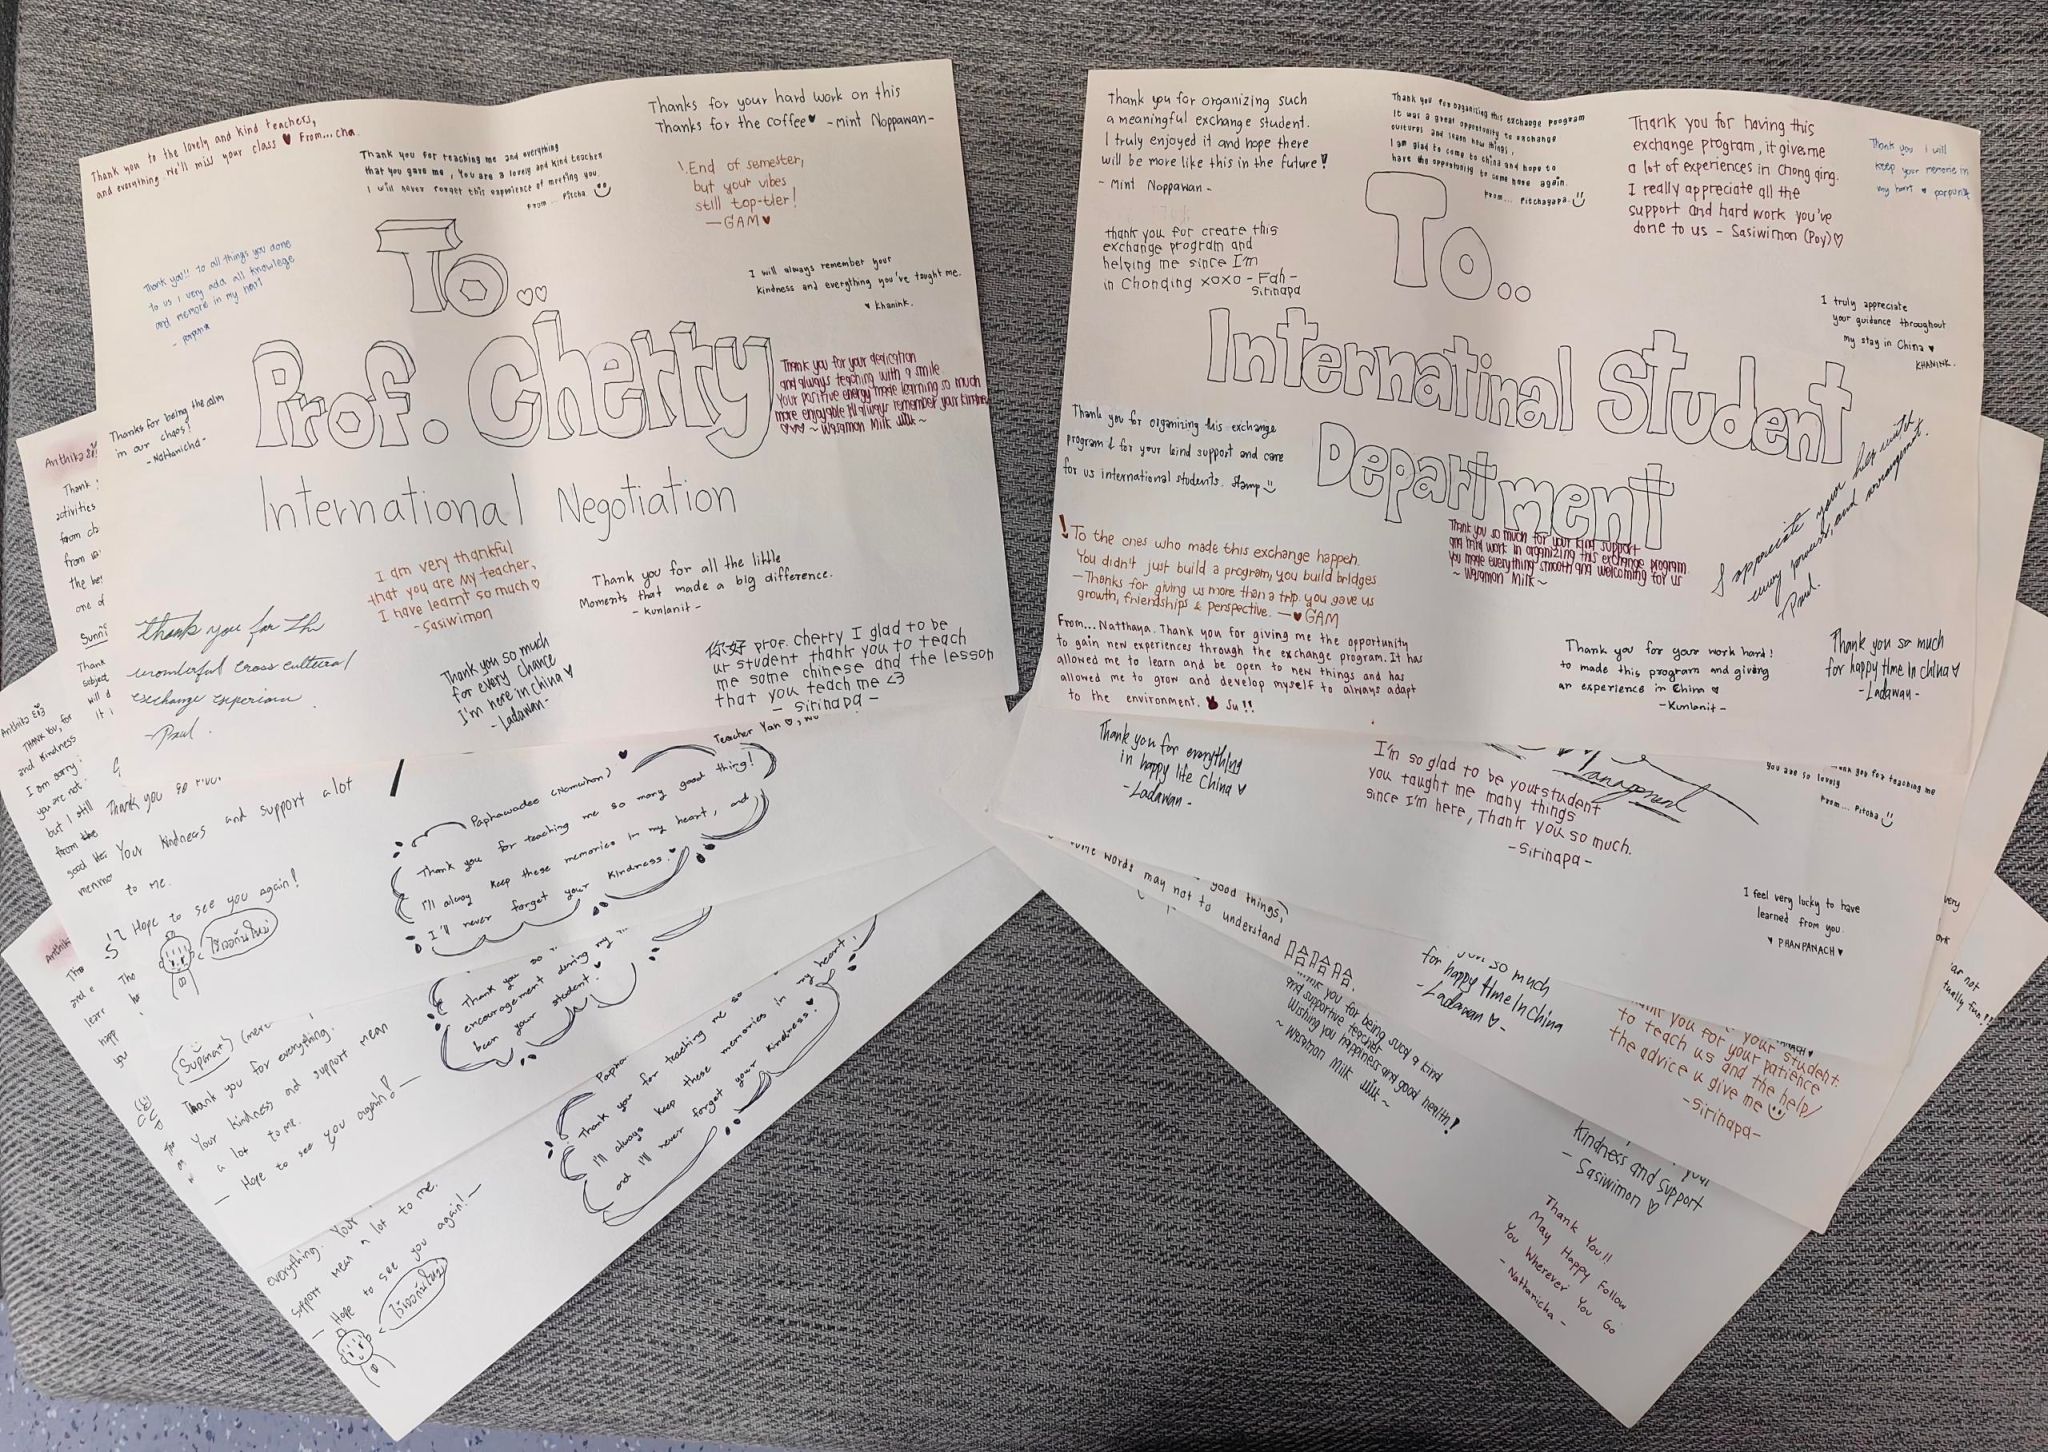 Thank you to the lovely and kind teachers,
and everything. We'll miss your class ♥ From...cha.
Thank you for teaching me and everything
that you gave me, You are a lovely and kind teacher
I will never forget this experience of meeting you.
From ... Pitcha.
Thanks for your hard work on this
Thanks for the coffee♥ -mint Noppawan-
! End of semester,
but your vibes
still top-tier!
—GAM♥
To..
Thank you!! to all things you done
to us I very add all knowlege
and memore in my heart
I will always remember your
kindness and everything you've taught me.
♥ Khanink.
Prof. Cherry
Thank you for your dedication
and always teaching with a smile
Your positive energy made learning so much
more enjoyable I'll always remember your kindness
~ Wasamon Milk
Thanks for being the calm
in our chaos!
-Nattanicha-
International Negotiation
I am very thankful
that you are my teacher,
I have learnt so much♡
-Sasiwimon
Thank you for all the little
Moments that made a big difference.
- Kunlanit -
thank you for the
wonderful cross cultural
exchange experience
-Paul.
Thank you so much
for every chance
I'm here in China♥
-Ladawan-
你好 prof. cherry I glad to be
ur student thank you to teach
me some chinese and the lesson
that you teach me <3
- Sirinapa -
Teacher Yan ♡,
Anthika
Thank
activities
from
from
the be
one of
Sunni
Thank
subject
will
it
Anthika
THANK YOU, for
and kindness
I am sorry
you are not
but I still
from the
good
Thank you so much
Your kindness and support a lot
to me.
Hope to see you again!
ไว้เจอกันใหม่
Paphawadee (Nomwhan)
Thank you for teaching me so many good thing!
I'll alway keep these memories in my heart, and
I'll never forget your kindness.♥
Supinat
Thank you for everything.
Your kindness and support mean
a lot to me.
— Hope to see you again! —
Thank you so
encouragement during my
been your student.♥
Anthi
everything. Your
support mean a lot to me.
— Hope to see you again! —
ไว้เจอกันใหม่
Papha
Thank you for teaching me so
I'll always keep these memories in my heart,
and I'll never forget your kindness!♥
Thank you for organizing such
a meaningful exchange student.
I truly enjoyed it and hope there
will be more like this in the future!
- Mint Noppawan -
Thank you for organizing this exchange program
It was a great opportunity to exchange
cultures and learn new things,
I am glad to come to china and hope to
have the opportunity to come here again.
From... Pitchayapa.
Thank you for having this
exchange program, it gives me
a lot of experiences in Chong qing.
I really appreciate all the
support and hard work you've
done to us - Sasiwimon (Poy)♡
Thank you I will
keep your memorie in
my heart
thank you for create this
exchange program and
helping me since I'm
in Chonqing xoxo - Fah -
Sirinapa
To..
I truly appreciate
your guidance throughout
my stay in China ♥
KHANINK.
Internatinal Student
Department
Thank you for organizing this exchange
program & for your kind support and care
for us international students. Stamp
I appreciate your help with
every process, and arrangement.
Paul.
! To the ones who made this exchange happen.
You didn't just build a program, you build bridges
—Thanks for giving us more than a trip. you gave us
growth, friendships & perspective. —♥GAM
Thank you so much for your kind support
and hard work in organizing this exchange program
You made everything smooth and welcoming for us
~ Wasamon Milk ~
From... Natthaya. Thank you for giving me the opportunity
to gain new experiences through the exchange program. It has
allowed me to learn and be open to new things and has
allowed me to grow and develop myself to always adapt
to the environment. Su!!
Thank you for your work hard!
to made this program and giving
an experience in China ♥
-Kunlanit-
Thank you so much
for happy time in China♥
-Ladawan-
Thank you for everything
in happy life China♥
-Ladawan -
I'm so glad to be your student
you taught me many things
since I'm here, Thank you so much.
-Sirinapa -
Management
thank you for teaching me
You are so lovely
From... Pitcha
I feel very lucky to have
learned from you.
♥ PHANPANACH ♥
good things,
some words may not to understand 哈哈哈.
you so much
for happy time in China
-Ladawan♡-
Thank you for being such a kind
and supportive teacher
Wishing you happiness and good health!
~ Wasamon Milk ~
your student
Thank you for your patience
to teach us and the help/
the advice u give me
-Sirinapa-
Kindness and Support
- Sasiwimon ♡
Thank You!!
May Happy Follow
You Wherever You Go
- Nattanicha -